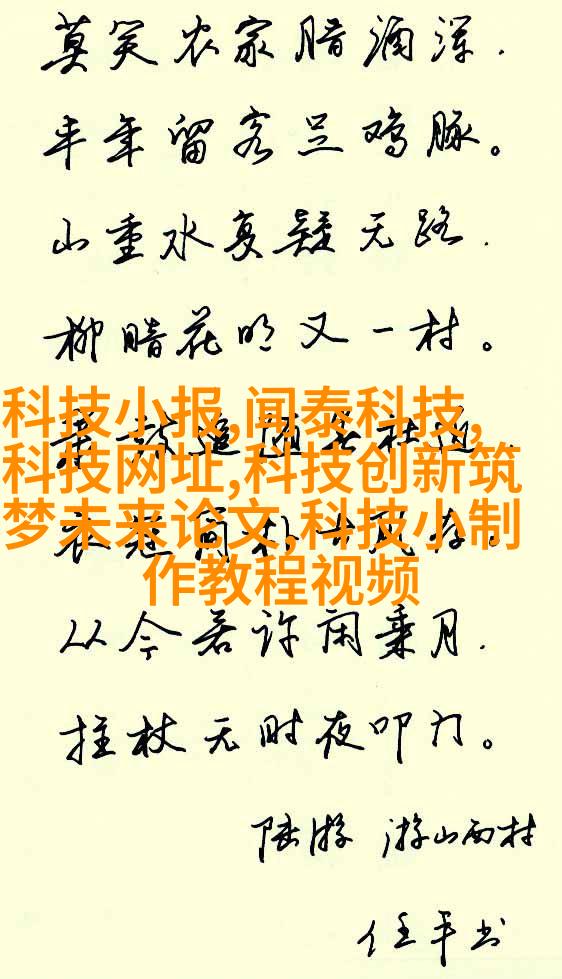 莫笑农家腊酒浑.
丰年留客足鸡豚。
山重水复疑无路.
柳暗花明又一村。
科技小报,闻泰科技,
科技网址,科技创新筑
梦未来论文,科技小制
作教程视频
从今若许闲乘月.
拄杖无时夜叩门。
陆游 游山西村
任平书